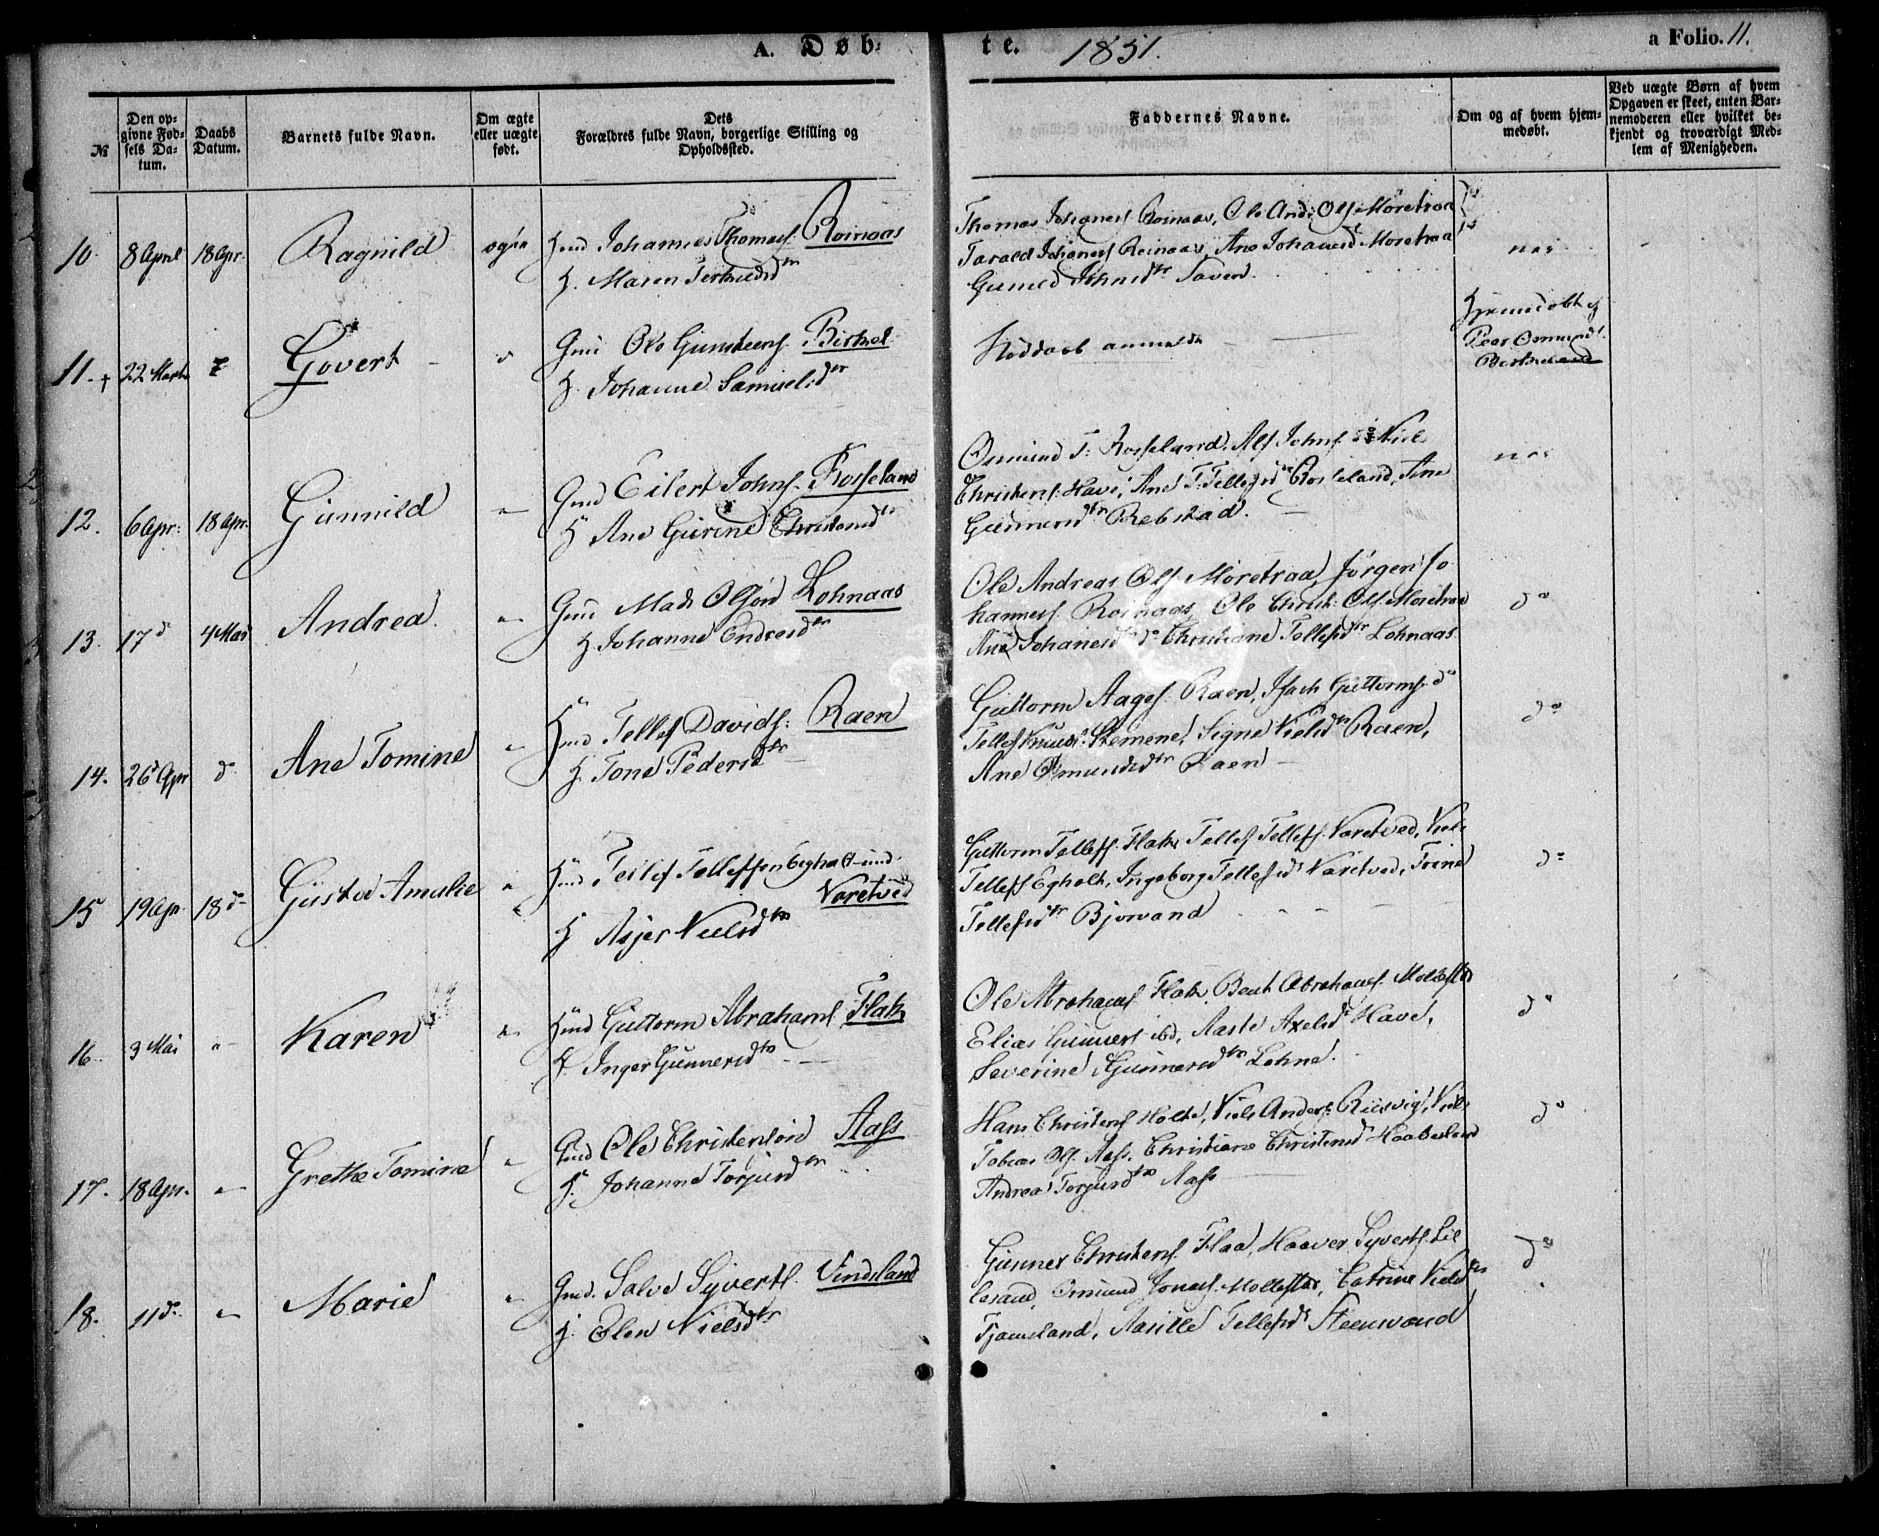 A. Døb-
te. 1851. a Folio. 11.
№
Den op-
givne Fød-
sels Da-
tum.
Daabs
Datum.
Barnets fulde Navn.
Om ægte
eller uægte
født.
Dets
Forældres fulde Navn, borgerlige Stilling og
Opholdssted.
Faddernes Navne.
Om og af hvem hjem-
medøbt.
Ved uægte Børn af hvem
Opgaven er skeet, enten Bar-
nemoderen eller hvilket be-
kjendt og troværdigt Med-
lem af Menigheden.
10. 8 April 18 Apr. Ragnild ægte
Johannes Thomess. Roinaas
H. Maren
Thomas Johaness Roinaas, Ole And: Ols. Moretraa
Tarald Johaness Reinaas, Ane Johannesd Moretraa
Johnsdtr
nei
11. + 22 Marts Govert
Gmd Ole Gunsteens. Birkel
H. Johanne Samuelsdtr
Hjemmedøbt af
Peer Osmunds.
12. 6 Apr: 18 Apr. Gunnild
Gmd Eilert Johns. Rosseland
H Ane Gurine Christensdtr
Osmund T. Rosseland. Alf Johns. Niel
Christens. Have, Ane T. Tellefsdtr Rosseland, Ane
Gunnersdtr Rebstad.
nei
13. 17 d 4 Mai Andrea
Gmd Mads Olsøn Lohnaas
H Johanne Endresdtr
Ole Andreas Ols. Moretraa, Jørgen Jo
hanness. Roinaas, Ole Christ. Ols. Moretraa
Ane Johanesd do Christiane Tellefsdtr Lohnaas
do
14. 26 Apr d Ane Tomine
Hmd Tellef Davids: Raen
H. Tone Pedersdtr
Guttorm Aages. Raen, Isach Guttorms. do
Tellef Knuds. Stemene, Signe Nielsdtr Raen,
Ane Osmundsdtr Raen
do
15 19 Apr. 18 d Gustav Amalie
Hmd Tellef Tellefsen Egholt
Varetved
H Asjer Nielsdtr
Guttorm Tellefs. Flaa, Tellef Tellefs. Varetved, Niels
Tellefs Egholt, Ingeborg Tellefsd Varetved, Trine
Tellefsdtr Bjorvand
do
16. 3 Mai Karen
Hmd Guttorm Abrahams Flak
H. Inger Gunnersdtr
Ole Abrahams Flak, Bent Abrahams.
Elias Gunners. ibd, Aaste Axelsd Have,
Severine Gunnersdtr Lohne.
do
17. 18 Apr. Grethe Tomine
Gmd Ole Christensøn Aass
H. Johanne Torjusdtr
Hans Christens Holte, Niels Anders. Riisvig, Niels
Tobias Ols. Aass. Christiane Christensd Haabesland
Andrea Torjusdtr Aass
do
18. 11 d. Marie
Gmd. Salve Syverts. Vindsland
H. Elen Nielsdtr
Gunner Christens. Flaa, Haaver Syverts. Lil
lesand, Osmund Jonas. Mollestad, Catrine Nielsdtr
Tjameland, Aasille Tellefsd Steenvand
do